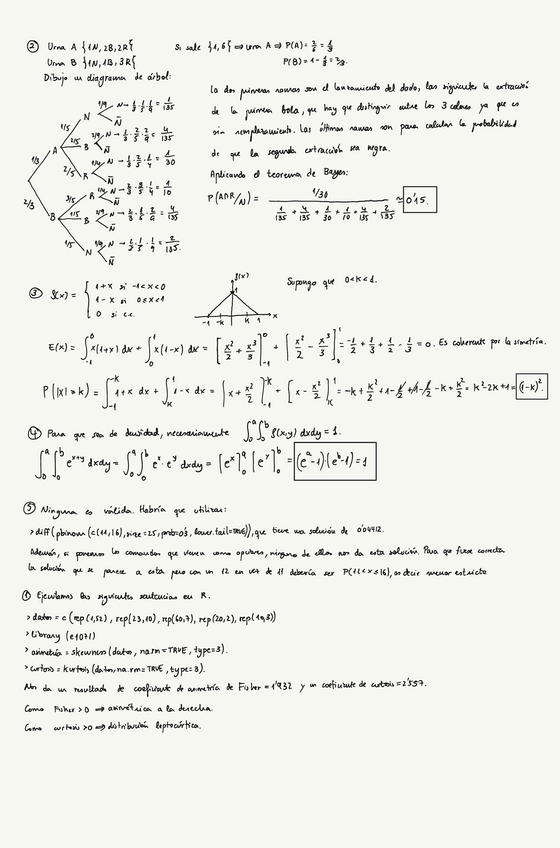 ② Urna A {1N, 2B, 2R} Si sale {1,6} ⟹ urna A ⟹ P(A) = 2/6 = 1/3
Urna B {1N, 1B, 3R} P(B) = 1 - 1/3 = 2/3.
Dibujo un diagrama de árbol:
1/3 A 1/5 N 1/9 N → 1/3 · 1/5 · 1/9 = 1/135
N̄
2/5 B 2/9 N → 1/3 · 2/5 · 2/9 = 4/135
N̄
2/5 R 1/4 N → 1/3 · 2/5 · 1/4 = 1/30
N̄
2/3 B 3/5 R 1/4 N → 2/3 · 3/5 · 1/4 = 1/10
N̄
1/5 B 2/9 N → 2/3 · 1/5 · 2/9 = 4/135
N̄
1/5 N 1/9 N → 2/3 · 1/5 · 1/9 = 2/135
N̄
La dos primeras ramas son el lanzamiento del dado, las siguientes la extracción
de la primera bola, que hay que distinguir entre los 3 colores ya que es
sin remplazamiento. Las últimas ramas son para calcular la probabilidad
de que la segunda extracción sea negra.
Aplicando el teorema de Bayes:
P(A∩R/N) = (1/30) / (1/135 + 4/135 + 1/30 + 1/10 + 4/135 + 2/135) ≈ 0'15.
③ f(x) = { 1+x si -1<x<0
1-x si 0≤x<1
0 si e.c.
f(x)
1
-1 -k k 1 x
Supongo que 0<k<1.
E(x) = ∫₋₁⁰ x(1+x) dx + ∫₀¹ x(1-x) dx = [x²/2 + x³/3]₋₁⁰ + [x²/2 - x³/3]₀¹ = -1/2 + 1/3 + 1/2 - 1/3 = 0. Es coherente por la simetría.
P(|X| ≥ k) = ∫₋₁⁻ᵏ 1+x dx + ∫ₖ¹ 1-x dx = [x + x²/2]₋₁⁻ᵏ + [x - x²/2]ₖ¹ = -k + k²/2 + 1 - 1/2 + 1 - 1/2 - k + k²/2 = k² - 2k + 1 = (1-k)².
④ Para que sea de densidad, necesariamente ∫₀ᵃ∫₀ᵇ f(x,y) dxdy = 1.
∫₀ᵃ∫₀ᵇ e^(x+y) dxdy = ∫₀ᵃ∫₀ᵇ eˣ · eʸ dxdy = [eˣ]₀ᵃ [eʸ]₀ᵇ = (eᵃ-1)·(eᵇ-1) = 1
⑤ Ninguna es válida. Habría que utilizar:
> diff(pbinom(c(11,16), size=25, prob=0'3, lower.tail=TRUE)), que tiene una solución de 0'04412.
Además, si ponemos los comandos que vienen como opciones, ninguno de ellos nos da esta solución. Para que fuese correcta
la solución que se parece a esta pero con un 12 en vez de 11 debería ser P(12<x≤16), es decir menor estricto
① Ejecutamos las siguientes sentencias en R.
> datos = c(rep(1,52), rep(23,10), rep(60,7), rep(20,2), rep(10,3))
> library(e1071)
> asimetría = skewness(datos, na.rm=TRUE, type=3).
> curtosis = kurtosis(datos, na.rm=TRUE, type=3).
Nos da un resultado de coeficiente de asimetría de Fisher = 1'932 y un coeficiente de curtosis = 2'557.
Como Fisher > 0 ⟹ asimétrica a la derecha.
Como curtosis > 0 ⟹ distribución leptocúrtica.